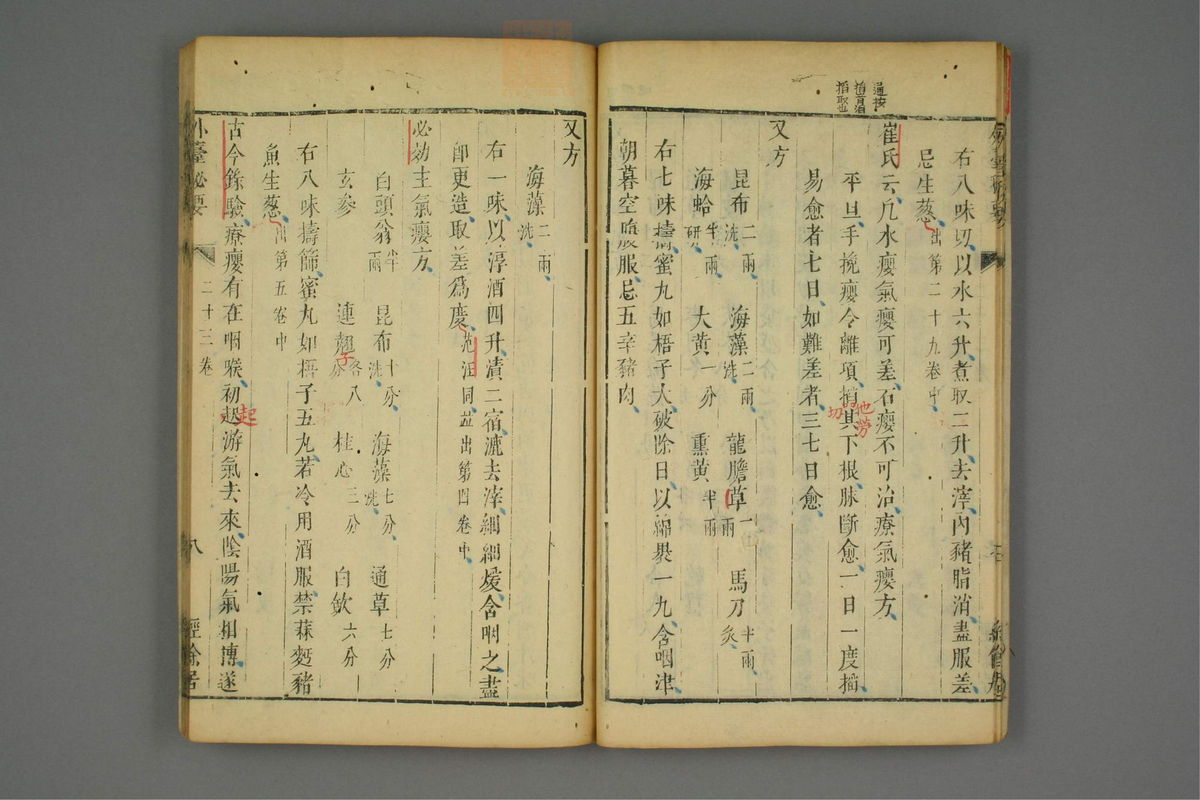 右八味切以水六升煮取二升去滓内豬脂消盡服差
忌生葱出第二十九卷中
崔氏云凡水癭氣癭可差石癭不可治療氣癭方
平旦手挽癭令離項掐其下根脉斷愈一日一度掐
易愈者七日如難差者三七日愈
又方
昆布二兩洗 海藻二兩洗 龍膽草一兩 馬刀半兩炙
海蛤半兩研 大黃一分 熏黃半兩
右七味擣蜜丸如梧子大破除日以綿裹一丸含咽津
朝暮空腹服忌五辛豬肉
又方
海藻二兩洗
右一味以淳酒四升漬二宿漉去滓細細煖含咽之盡
即更造取差爲度范汪同並出第四卷中
必効主氣癭方
白頭翁半兩 昆布十分洗 海藻七分洗 通草七分
玄參 連翹子各八分 桂心三分 白斂六分
右八味擣篩蜜丸如梧子五丸若冷用酒服禁蒜麪豬
魚生葱出第五卷中
古今錄驗療癭有在咽喉初起游氣去來陰陽氣相搏遂
外臺祕要 二十三卷 八 經餘居
起
切
他勞